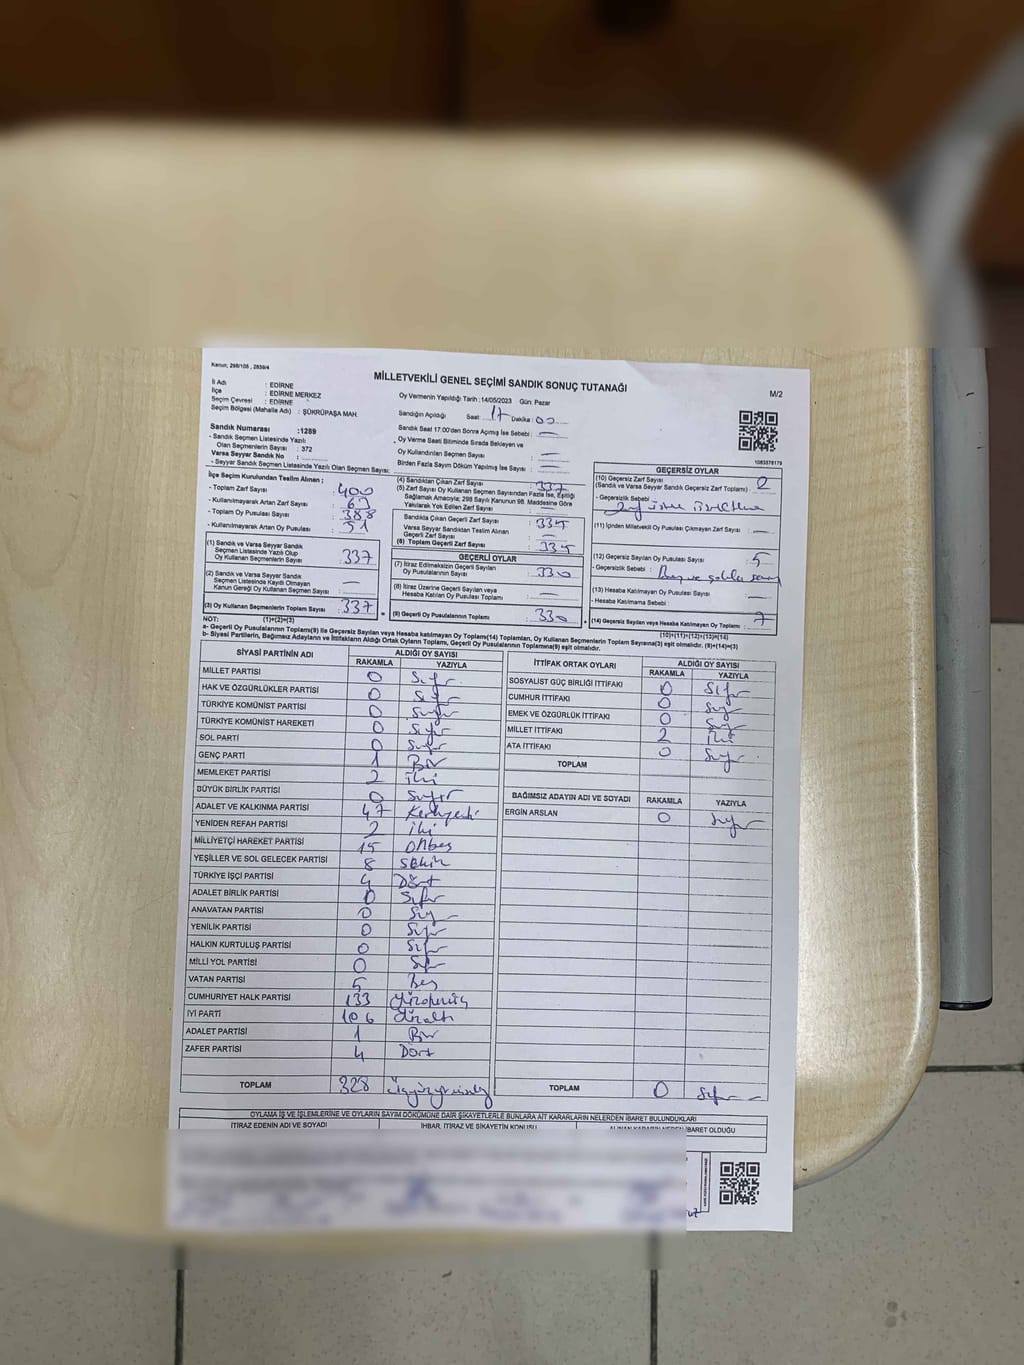 Kanun; 298/105 , 2839/4
MİLLETVEKİLİ GENEL SEÇİMİ SANDIK SONUÇ TUTANAĞI
M/2
İl Adı : EDİRNE
İlçe : EDİRNE MERKEZ
Seçim Çevresi : EDİRNE
Seçim Bölgesi (Mahalle Adı) : ŞÜKRÜPAŞA MAH.
Oy Vermenin Yapıldığı Tarih :14/05/2023 Gün: Pazar
Sandığın Açıldığı Saat: 17 Dakika : 00
Sandık Saat 17:00'den Sonra Açılmış İse Sebebi : —
Oy Verme Saati Bitiminde Sırada Bekleyen ve
Oy Kullandırılan Seçmen Sayısı : —
Birden Fazla Sayım Döküm Yapılmış İse Sayısı : —
Sandık Numarası :1289
- Sandık Seçmen Listesinde Yazılı
Olan Seçmenlerin Sayısı : 372
Varsa Seyyar Sandık No :
- Seyyar Sandık Seçmen Listesinde Yazılı Olan Seçmen Sayısı:
İlçe Seçim Kurulundan Teslim Alınan ;
- Toplam Zarf Sayısı : 400
- Kullanılmayarak Artan Zarf Sayısı : 63
- Toplam Oy Pusulası Sayısı : 388
- Kullanılmayarak Artan Oy Pusulası : 51
(1) Sandık ve Varsa Seyyar Sandık
Seçmen Listesinde Yazılı Olup
Oy Kullanan Seçmenlerin Sayısı : 337
(2) Sandık ve Varsa Seyyar Sandık
Seçmen Listesinde Kaydı Olmayan
Kanun Gereği Oy Kullanan Seçmen Sayısı : —
(3) Oy Kullanan Seçmenlerin Toplam Sayısı : 337
(1)+(2)=(3)
(4) Sandıktan Çıkan Zarf Sayısı : 337
(5) Zarf Sayısı Oy Kullanan Seçmen Sayısından Fazla İse, Eşitliği
Sağlamak Amacıyla; 298 Sayılı Kanunun 98. Maddesine Göre
Yakılarak Yok Edilen Zarf Sayısı : —
Sandıkta Çıkan Geçerli Zarf Sayısı : 335
Varsa Seyyar Sandıktan Teslim Alınan
Geçerli Zarf Sayısı : —
(6) Toplam Geçerli Zarf Sayısı : 335
GEÇERLİ OYLAR
(7) İtiraz Edilmeksizin Geçerli Sayılan
Oy Pusulalarının Sayısı : 330
(8) İtiraz Üzerine Geçerli Sayılan veya
Hesaba Katılan Oy Pusulası Toplamı : —
(9) Geçerli Oy Pusulalarının Toplamı : 330
1083878179
GEÇERSİZ OYLAR
(10) Geçersiz Zarf Sayısı
(Sandık ve Varsa Seyyar Sandık Geçersiz Zarf Toplamı) : 2
- Geçersizlik Sebebi :
(11) İçinden Milletvekili Oy Pusulası Çıkmayan Zarf Sayısı : —
(12) Geçersiz Sayılan Oy Pusulası Sayısı : 5
- Geçersizlik Sebebi :
(13) Hesaba Katılmayan Oy Pusulası Sayısı : —
- Hesaba Katılmama Sebebi :
(14) Geçersiz Sayılan veya Hesaba Katılmayan Oy Toplamı : 7
(10)+(11)+(12)+(13)=(14)
NOT:
a- Geçerli Oy Pusulalarının Toplamı(9) ile Geçersiz Sayılan veya Hesaba katılmayan Oy Toplamı(14) Toplamları, Oy Kullanan Seçmenlerin Toplam Sayısına(3) eşit olmalıdır. (9)+(14)=(3)
b- Siyasi Partilerin, Bağımsız Adayların ve İttifakların Aldığı Ortak Oyların Toplamı, Geçerli Oy Pusulalarının Toplamına(9) eşit olmalıdır.
SİYASİ PARTİNİN ADI ALDIĞI OY SAYISI
RAKAMLA YAZIYLA
MİLLET PARTİSİ 0 Sıfır
HAK VE ÖZGÜRLÜKLER PARTİSİ 0 Sıfır
TÜRKİYE KOMÜNİST PARTİSİ 0 Sıfır
TÜRKİYE KOMÜNİST HAREKETİ 0 Sıfır
SOL PARTİ 0 Sıfır
GENÇ PARTİ 1 Bir
MEMLEKET PARTİSİ 2 İki
BÜYÜK BİRLİK PARTİSİ 0 Sıfır
ADALET VE KALKINMA PARTİSİ 47 Kırkyedi
YENİDEN REFAH PARTİSİ 2 İki
MİLLİYETÇİ HAREKET PARTİSİ 15 Onbeş
YEŞİLLER VE SOL GELECEK PARTİSİ 8 Sekiz
TÜRKİYE İŞÇİ PARTİSİ 4 Dört
ADALET BİRLİK PARTİSİ 0 Sıfır
ANAVATAN PARTİSİ 0 Sıfır
YENİLİK PARTİSİ 0 Sıfır
HALKIN KURTULUŞ PARTİSİ 0 Sıfır
MİLLİ YOL PARTİSİ 0 Sıfır
VATAN PARTİSİ 5 Beş
CUMHURİYET HALK PARTİSİ 133 Yüzotuzüç
İYİ PARTİ 106 Yüzaltı
ADALET PARTİSİ 1 Bir
ZAFER PARTİSİ 4 Dört
TOPLAM 328 Üçyüzyirmisekiz
İTTİFAK ORTAK OYLARI ALDIĞI OY SAYISI
RAKAMLA YAZIYLA
SOSYALİST GÜÇ BİRLİĞİ İTTİFAKI 0 Sıfır
CUMHUR İTTİFAKI 0 Sıfır
EMEK VE ÖZGÜRLÜK İTTİFAKI 0 Sıfır
MİLLET İTTİFAKI 2 İki
ATA İTTİFAKI 0 Sıfır
TOPLAM
BAĞIMSIZ ADAYIN ADI VE SOYADI RAKAMLA YAZIYLA
ERGİN ARSLAN 0 Sıfır
TOPLAM 0 Sıfır
OYLAMA İŞ VE İŞLEMLERİNE VE OYLARIN SAYIM DÖKÜMÜNE DAİR ŞİKAYETLERLE BUNLARA AİT KARARLARIN NELERDEN İBARET BULUNDUKLARI
İTİRAZ EDENİN ADI VE SOYADI İHBAR, İTİRAZ VE ŞİKAYETİN KONUSU ALINAN KARARIN NEDEN İBARET OLDUĞU